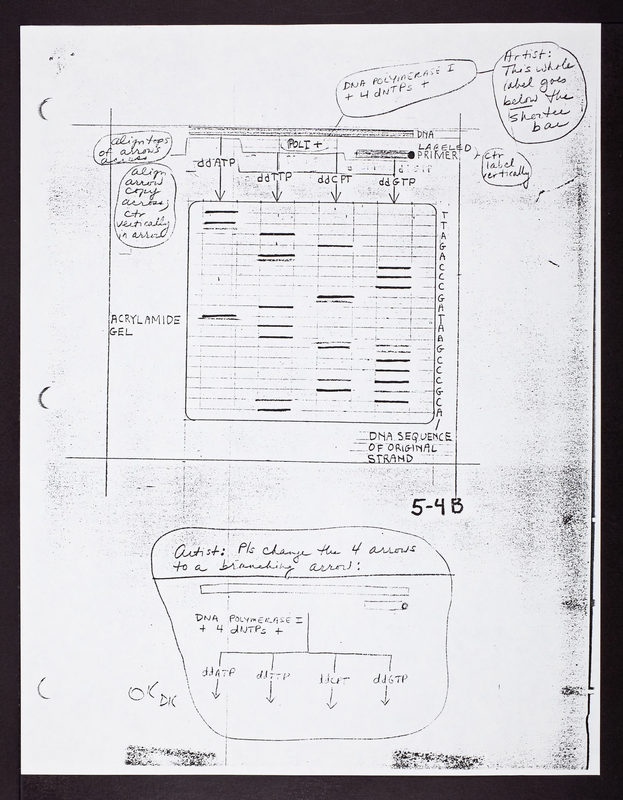 DNA POLYMERASE I
+ 4 dNTPs +
Artist:
This whole
label goes
below the
shorter
bar
DNA
Align tops
of arrows
across
POLI +
LABELED
PRIMER
ctr
label
vertically
Align
arrow
copy
across;
ctr
vertically
in arrow
ddATP
ddTTP
ddCPT
ddGTP
T
T
A
G
A
C
C
C
G
A
T
A
A
G
C
C
C
G
C
A
ACRYLAMIDE
GEL
DNA SEQUENCE
OF ORIGINAL
STRAND
5-4B
Artist: Pls change the 4 arrows
to a branching arrow:
DNA POLYMERASE I
+ 4 dNTPs +
ddATP ddTTP ddCPT ddGTP
OK DK